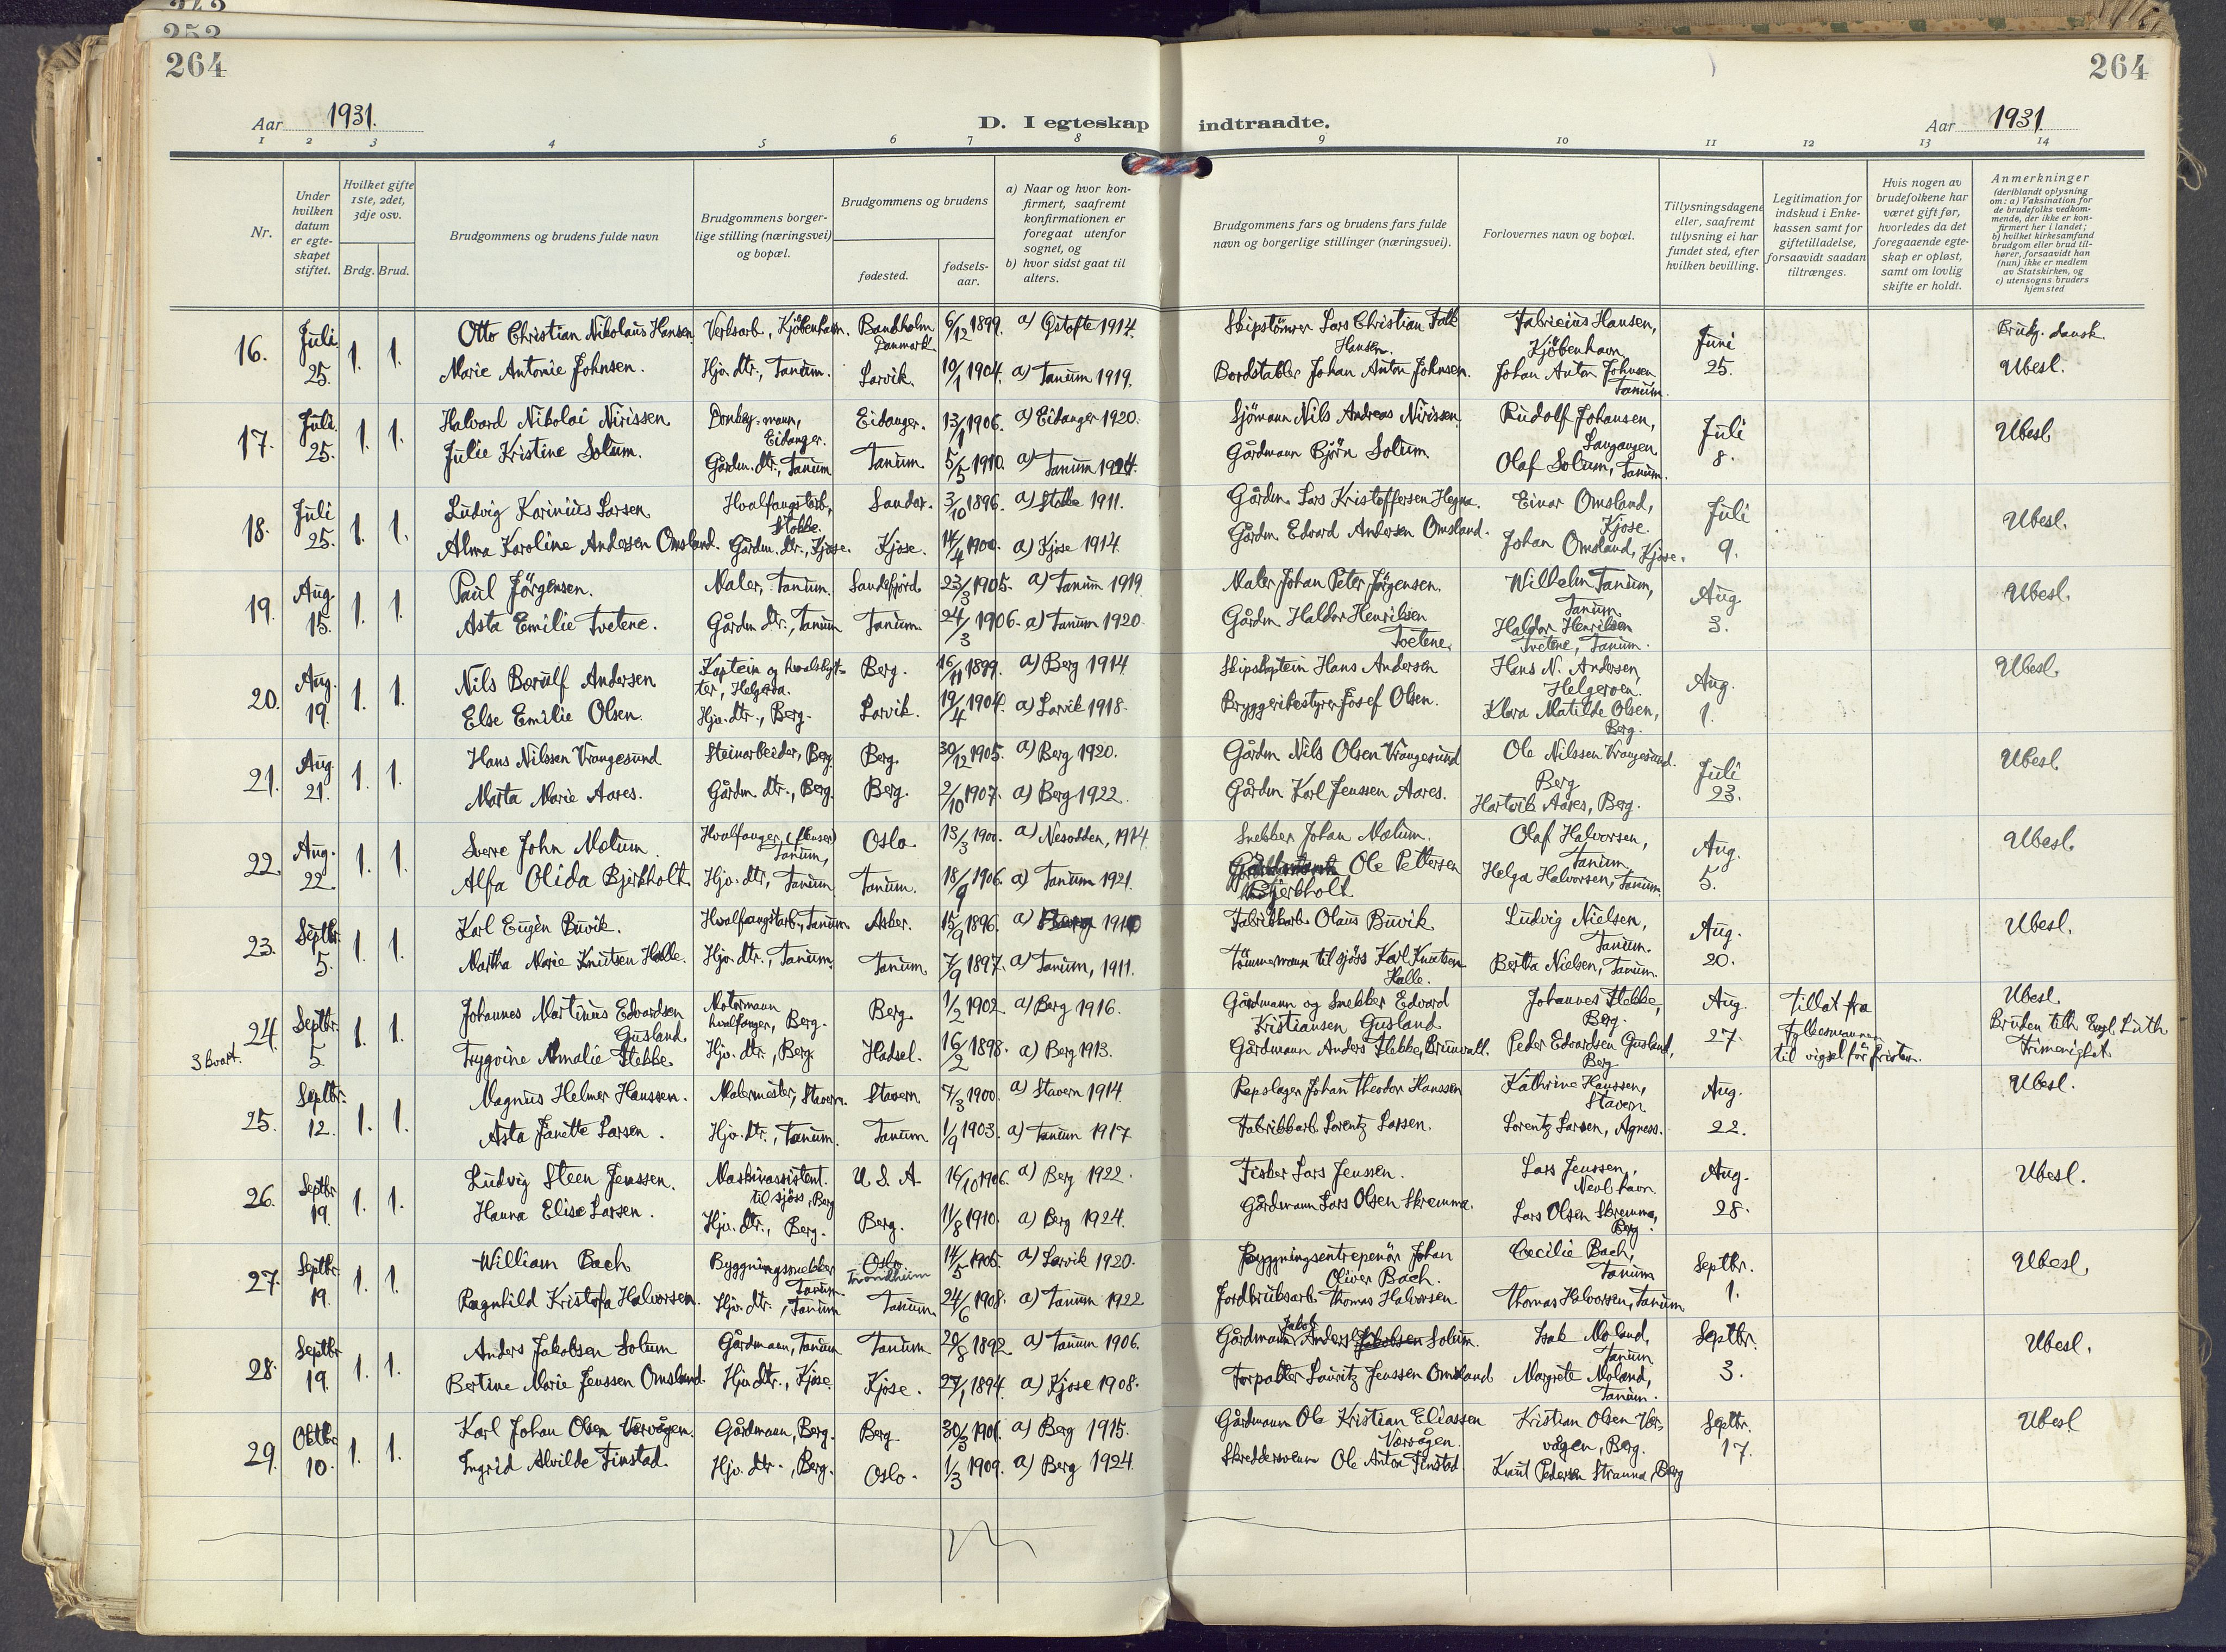 264
264
Aar 1931.
D. I egteskap indtraadte.
Aar 1931
1 2 3 4 5 6 7 8 9 10 11 12 13 14
Nr.
Under hvilken datum er egte-skapet stiftet.
Hvilket gifte 1ste, 2det, 3dje osv.
Brdg. Brud.
Brudgommens og brudens fulde navn
Brudgommens borger-lige stilling (næringsvei) og bopæl.
Brudgommens og brudens
fødested.
fødsels-aar.
a) Naar og hvor kon-firmert, saafremt konfirmationen er foregaat utenfor sognet, og
b) hvor sidst gaat til alters.
Brudgommens fars og brudens fars fulde navn og borgerlige stillinger (næringsvei).
Forlovernes navn og bopæl.
Tillysningsdagene eller, saafremt tillysning ei har fundet sted, efter hvilken bevilling.
Legitimation for indskud i Enke-kassen samt for giftetilladelse, forsaavidt saadan tiltrænges.
Hvis nogen av brudefolkene har været gift før, hvorledes da det foregaaende egte-skap er opløst, samt om lovlig skifte er holdt.
Anmerkninger (deriblandt oplysning om: a) Vaksination for de brudefolks vedkom-mende, der ikke er kon-firmert her i landet; b) hvilket kirkesamfund brudgom eller brud til-hører, forsaavidt han (hun) ikke er medlem av Statskirken, og c) utensogns bruders hjemsted
16. Juli 25. 1. 1. Otto Christian Nikolaus Hansen Verksarb., Kjöbenhavn. Bandholm Danmark 6/12 1899. a) 1914. Skipstömrer Lars Christian Falk Hansen. Fabricius Hansen, Kjöbenhavn Juni 25. Brudg. dansk
Marie Antonie Johnsen. Hjv. dtr., Tanum. Larvik. 10/1 1904. a) Tanum 1919. Bordstabler Johan Anton Johnsen. Johan Anton Johnsen Tanum. Ubesl.
17. Juli 25. 1. 1. Halvard Nikolai Nirissen Eidanger. Eidanger. 13/1 1906. a) Eidanger 1920. Sjömann Nils Andreas Nirissen. Rudolf Johansen, Langangen Juli 8. Ubesl
Julie Kristine Solum. Gårdm. dtr., Tanum Tanum. 5/5 1910. a) Tanum 1924. Gårdmann Björn Solum Olaf Solum, Tanum.
18. Juli 25. 1. 1. Ludvig Karinius Larsen Hvalfangstarb, Stokke. Sandar. 3/10 1896. a) Stokke 1911. Gårdm. Lars Kristoffersen Hegna. Einar Omsland, Kjose Juli 9. Ubesl.
Alma Karoline Andersen Omsland. Gårdm. dtr., Kjose. Kjose. 14/4 1900. a) Kjose 1914. Gårdm Edvard Andersen Omsland. Johan Omsland, Kjose.
19. Aug 15. 1. 1. Paul Jörgensen. Maler, Tanum. Sandefjord. 23/3 1905. a) Tanum 1919 Maler Johan Peter Jörgensen. Wilhelm Tanum, Tanum Aug 3. Ubesl.
Asta Emilie Tvetene. Gårdm dtr., Tanum Tanum. 24/3 1906. a) Tanum 1920. Gårdm Haldor Henriksen Tvetene. Haldor Henriksen Tvetene, Tanum.
20. Aug. 19. 1. 1. Nils Berulf Andersen Kaptein og hvalskyt-ter, Helgeroa. Berg. 16/11 1899. a) Berg 1914 Skipskaptein Hans Andersen Hans N. Andersen, Helgeroen. Aug. 1. Ubesl
Else Emilie Olsen. Hjv. dtr., Berg. Larvik. 19/4 1904. a) Larvik 1918. Bryggeribestyrer Josef Olsen. Klara Matilde Olsen, Berg.
21. Aug 21. 1. 1. Hans Nilssen Vrangesund Steinarbeider, Berg Berg. 30/12 1905. a) Berg 1920. Gårdm Nils Olsen Vrangesund Ole Nilssen Vrangesund. Berg Juli 23. Ubesl
Marta Marie Aares. Gårdm dtr., Berg. Berg. 2/10 1907. a) Berg 1922. Gårdm Karl Jenssen Aares. Hartvik Aares, Berg.
22. Aug. 22. 1. 1. Sverre John Mælum. Hvalfanger (flenser) Tanum, Oslo 13/3 1900. a) Nesodden, 1914. Snekker Johan Mælum. Olaf Halvorsen, Tanum Aug. 5. Ubesl.
Alfa Olida Bjerkholt. Hjv. dtr, Tanum Tanum. 18/9 1906. a) Tanum 1921. Ole Pettersen Bjerkholt Helga Halvorsen, Tanum
23. Septbr. 5. 1. 1. Karl Eugèn Buvik. Hvalfangstarb., Tanum. Asker. 15/9 1896. a) 1910 Fabrikkarb. Olaus Buvik Ludvig Nielsen, Tanum. Aug. 20. Ubesl.
Martha Marie Knutsen Halle. Hjv. dtr., Tanum. Tanum. 7/9 1897. a) Tanum, 1911. Tömmermann til sjöss Karl Knutsen Halle. Bertha Nielsen, Tanum.
24. Septbr. 5 1. 1. Johannes Martinus Edvardsen Gusland. Motormann hvalfanger, Berg. Berg. 1/2 1902 a) Berg 1916. Gårdmann og Snekker Edvard Kristiansen Gusland Johannes Stebbe, Berg. Aug. 27. Tillat fra Fylkesmannen til vigsel för fristen. Ubesl Bruden tilh Evgl Luth Frimenighet
3 kvart. Trygvine Amalie Stebbe Hjv. dtr., Berg. Hadsel. 16/2 1898. a) Berg 1913. Gårdmann Anders Stebbe, Brunvall. Peder Edvardsen Gusland, Berg
25. Septbr. 12. 1. 1. Magnus Helmer Hanssen. Malermester, Stavern. Stavern 7/3 1900. a) Stavern 1914. Repslager Johan Theodor Hanssen Kathrine Hanssen, Stavern Aug. 22. Ubesl.
Asta Janette Larsen. Hjv. dtr., Tanum. Tanum. 1/9 1903. a) Tanum 1917 Fabrikkarb. Lorentz Larsen. Lorentz Larsen, Agness.
26. Septbr 19. 1. 1. Ludvig Steen Jenssen. Maskinassistent. til sjöss, Berg U. S. A. 16/10 1906. a) Berg 1922. Fisker Lars Jenssen. Lars Jenssen, Nevlhavn. Aug. 28. Ubesl.
Hanna Elise Larsen. Hjv. dtr., Berg. Berg. 11/8 1910. a) Berg 1924. Gårdmann Lars Olsen Skremma. Lars Olsen Skremma, Berg.
27. Septbr. 19. 1. 1. William Bach Byggningssnekker Tanum Oslo Trondheim 14/5 1905. a) Larvik 1920. Byggningsentrepenör Johan Oliver Bach. Cecilie Bach, Tanum Septbr. 1. Ubesl.
Ragnhild Kristofa Halvorsen. Hjv. dtr., Tanum Tanum. 24/6 1908. a) Tanum 1922 Jordbruksarb. Thomas Halvorsen Thomas Halvorsen, Tanum
28. Septbr 19. 1. 1. Anders Jakobsen Solum Gårdmann, Tanum Tanum 20/8 1892. a) Tanum 1906. Gårdmann Jakob Anders Jakobsen Solum. Isak Moland, Tanum. Septbr. 3. Ubesl.
Bertine Marie Jenssen Omsland. Hjv. dtr., Kjose. Kjose. 27/1 1894. a) Kjose 1908. Forpakter Lauritz Jenssen Omsland Margrete Moland, Tanum.
29. Oktbr 10. 1. 1. Karl Johan Olsen Vervågen. Gårdmann, Berg. Berg 30/3 1901. a) Berg 1915. Gårdmann Ole Kristian Eliassen Vervågen. Kristian Olsen Ver-vågen, Berg. Septbr. 17. Ubesl
Ingrid Alvilde Finstad. Hjv. dtr., Berg. Oslo. 1/3 1909. a) Berg 1924. Skreddersvenn Ole Anton Finstad Knut Pedersen Strauma, Berg